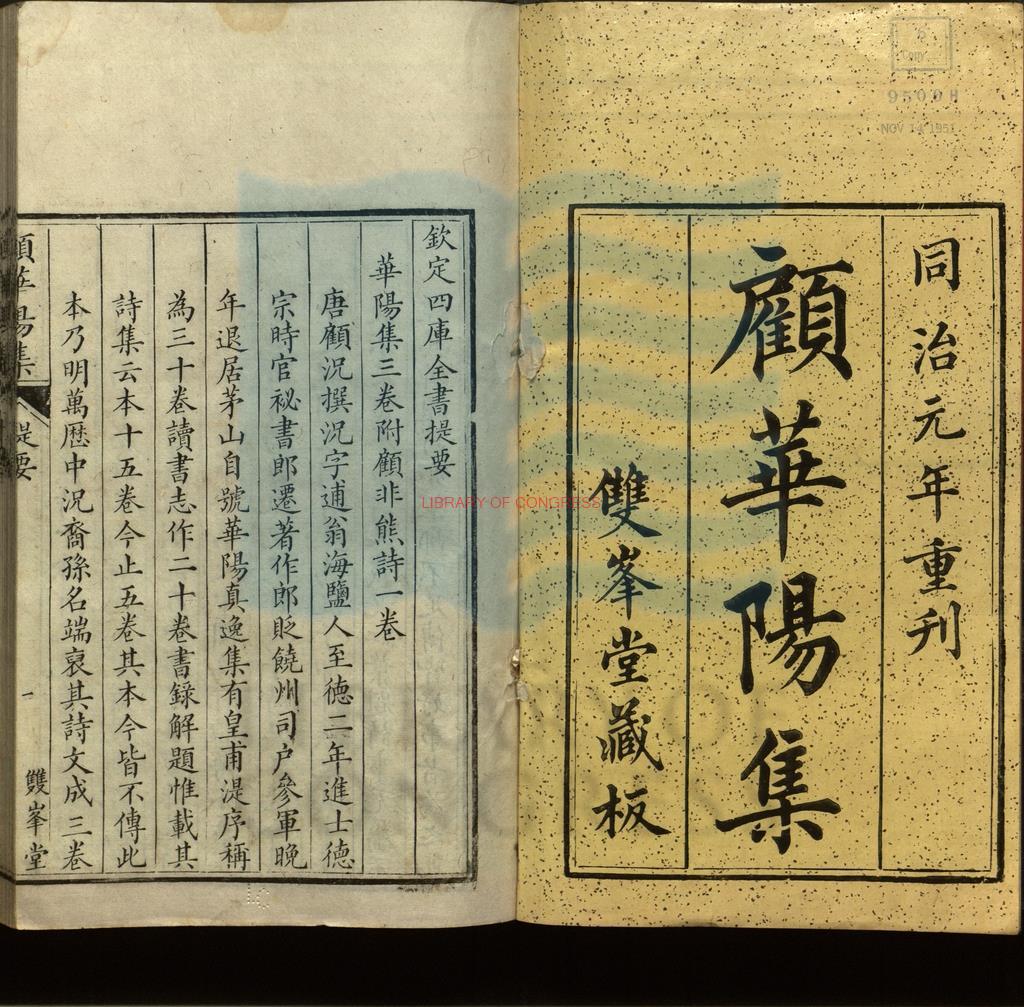 同治元年重刊
顧華陽集
雙峯堂藏板
欽定四庫全書提要
華陽集三卷附顧非熊詩一卷
唐顧況撰況字逋翁海鹽人至德二年進士德
宗時官祕書郎遷著作郎貶饒州司户參軍晚
年退居茅山自號華陽真逸集有皇甫湜序稱
為三十卷讀書志作二十卷書錄解題惟載其
詩集云本十五卷今止五卷其本今皆不傳此
本乃明萬歷中況裔孫名端裒其詩文成三卷
顧華陽集 提要 一 雙峯堂
LIBRARY OF CONGRESS
COPY
9509 H
NOV 14 1951